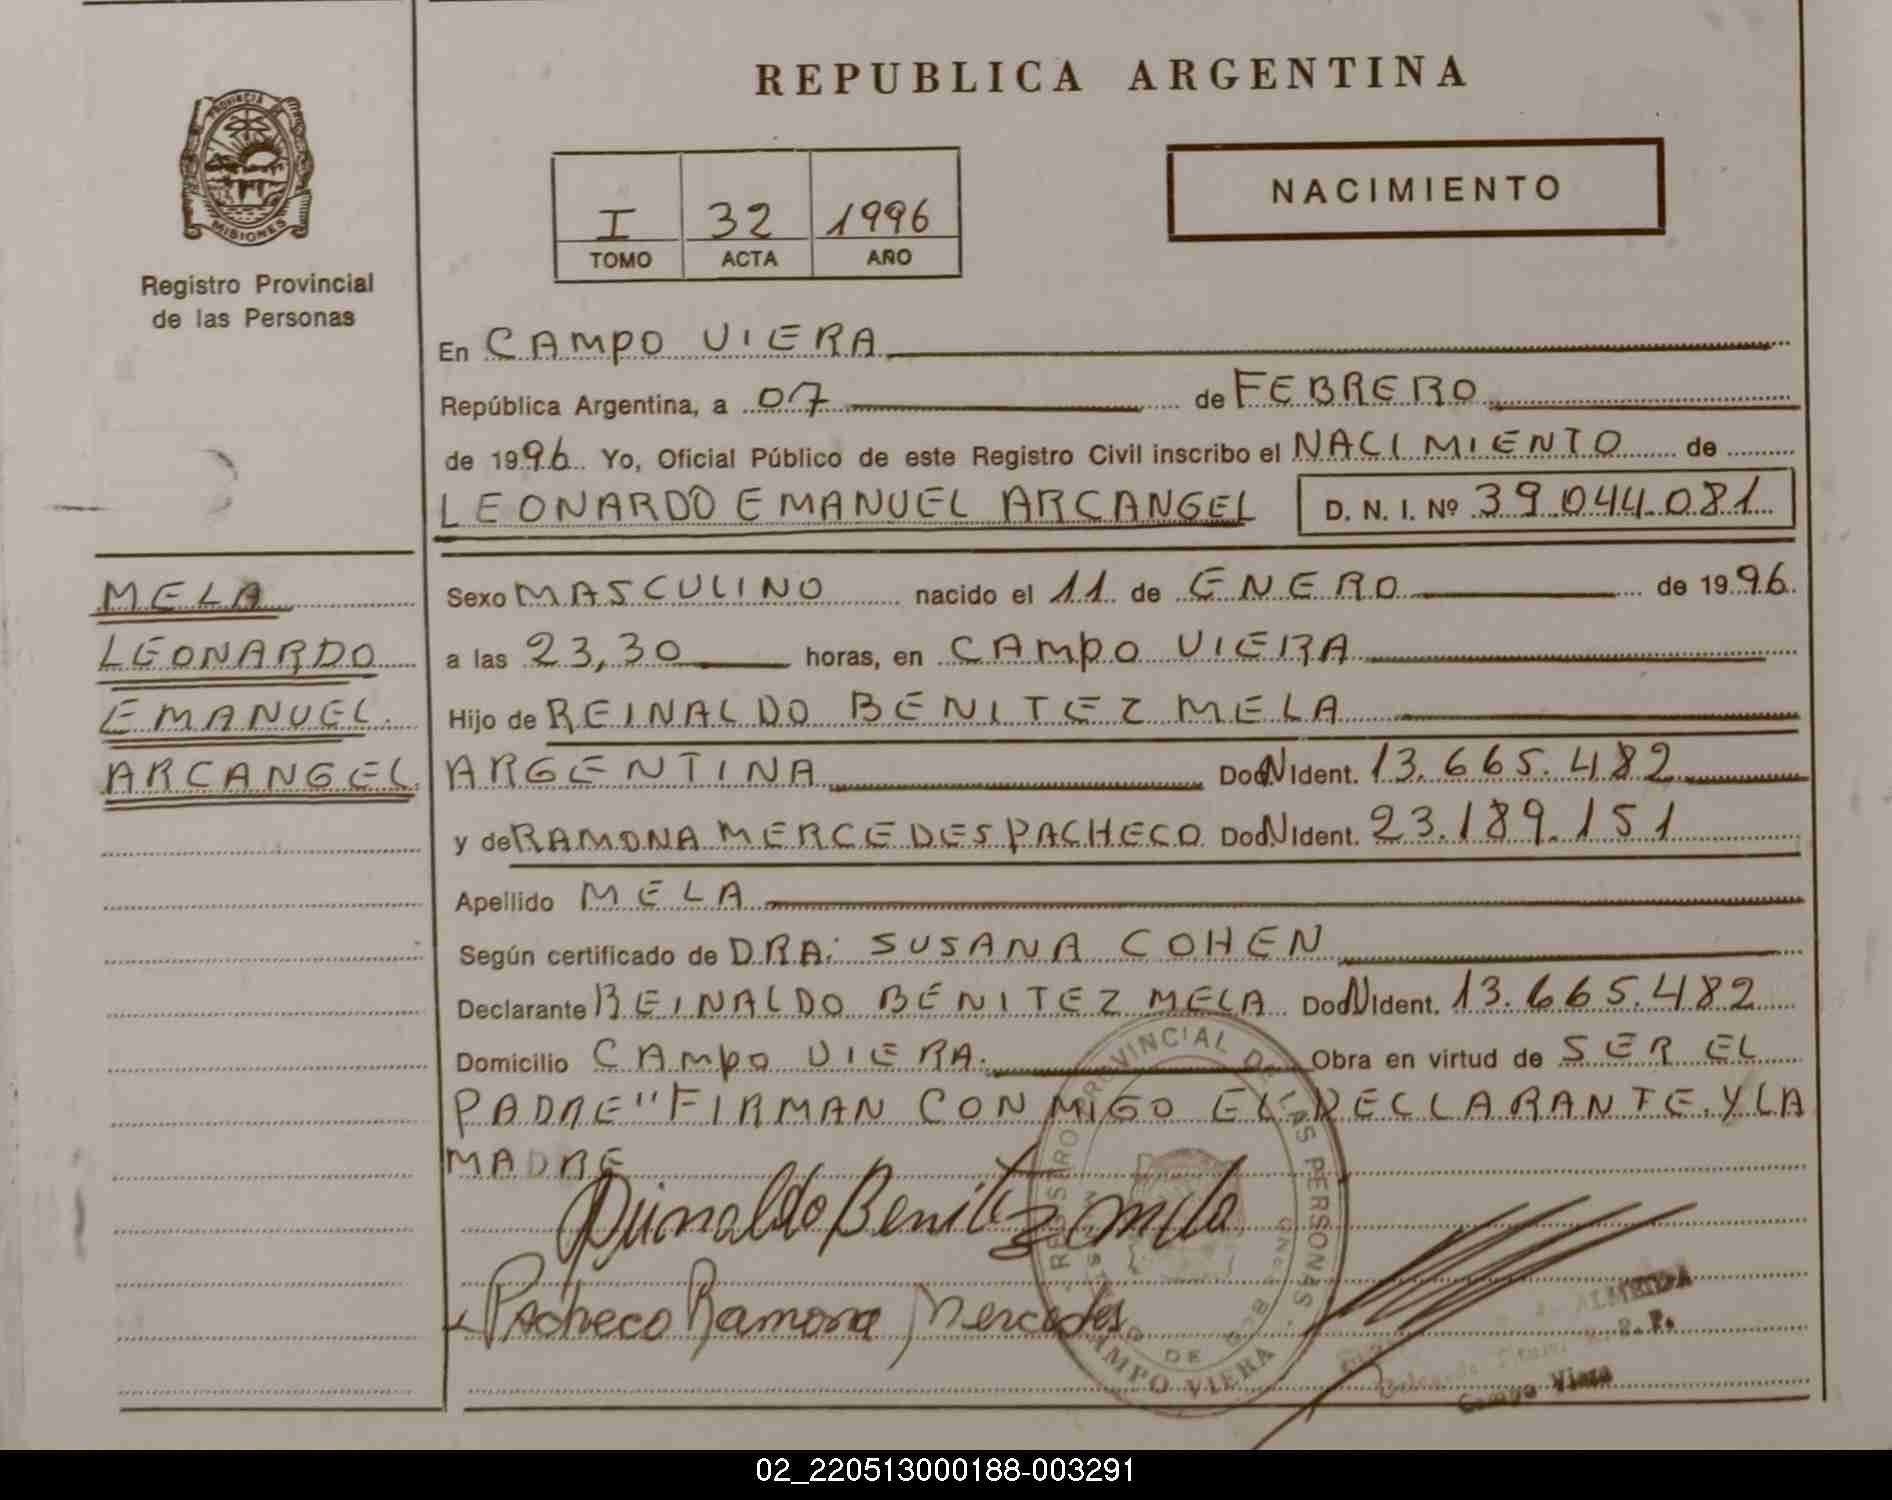 REPUBLICA ARGENTINA
PROVINCIA DE
MISIONES
Registro Provincial
de las Personas
I 32 1996
TOMO ACTA AÑO
NACIMIENTO
En CAMPO VIERA
República Argentina, a 07 de FEBRERO
de 1996 Yo, Oficial Público de este Registro Civil inscribo el NACIMIENTO de
LEONARDO EMANUEL ARCANGEL D. N. I. Nº 39.044.081
MELA
LEONARDO
EMANUEL
ARCANGEL
Sexo MASCULINO nacido el 11 de ENERO de 1996
a las 23,30 horas, en CAMPO VIERA
Hijo de REINALDO BENITEZ MELA
ARGENTINA Doc. N Ident. 13.665.482
y de RAMONA MERCEDES PACHECO Doc. N Ident. 23.189.151
Apellido MELA
Según certificado de DRA: SUSANA COHEN
Declarante REINALDO BENITEZ MELA Doc. N Ident. 13.665.482
Domicilio CAMPO VIERA. Obra en virtud de SER EL
PADRE" FIRMAN CONMIGO EL DECLARANTE Y LA
MADRE
Reinaldo Benitez Mela
Pacheco Ramona Mercedes
REGISTRO PROVINCIAL DE LAS PERSONAS
CAMPO VIERA
ALMEIDA
Campo Viera
02_220513000188-003291